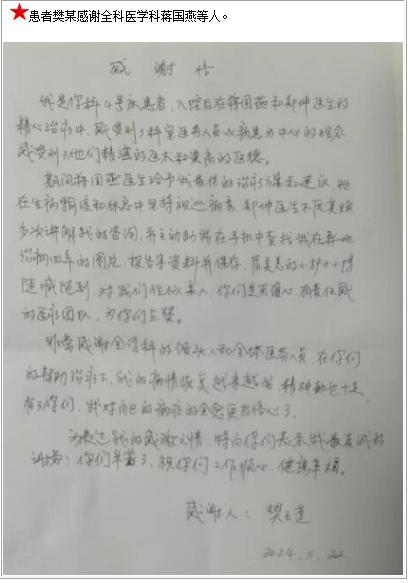 患者樊某感谢全科医学科蒋国燕等人。
感谢信
我是你科4号床患者，入院后在蒋国燕和郑坤医生的
精心治疗中，感受到了科室医务人员以病患为中心的理念
感受到了他们精湛的医术和崇高的医德。
期间蒋国燕医生给予我最佳的治疗方案和建议，她
在生病输液和休息中坚持巡病房，郑坤医生不厌其烦
多次讲解我的咨询，并主动帮我在手机中查找我在异地
治病四年的图片、报告等资料并保存，
随喊随到，对我们性似亲人，你们是有爱心、有责任感
的医疗团队，为你们点赞。
非常感谢全学科的领头人和全体医务人员，在你们
的帮助治疗下，我的病情恢复越来越好，精神勤也十足，
有了你们，我对自己的病症的全愈更有信心了。
为表达我的感激之情，特向你们表示我最真诚的
谢意：你们辛苦了，祝你们工作顺心，健康幸福。
感谢人：樊玉莲
2024.11.22